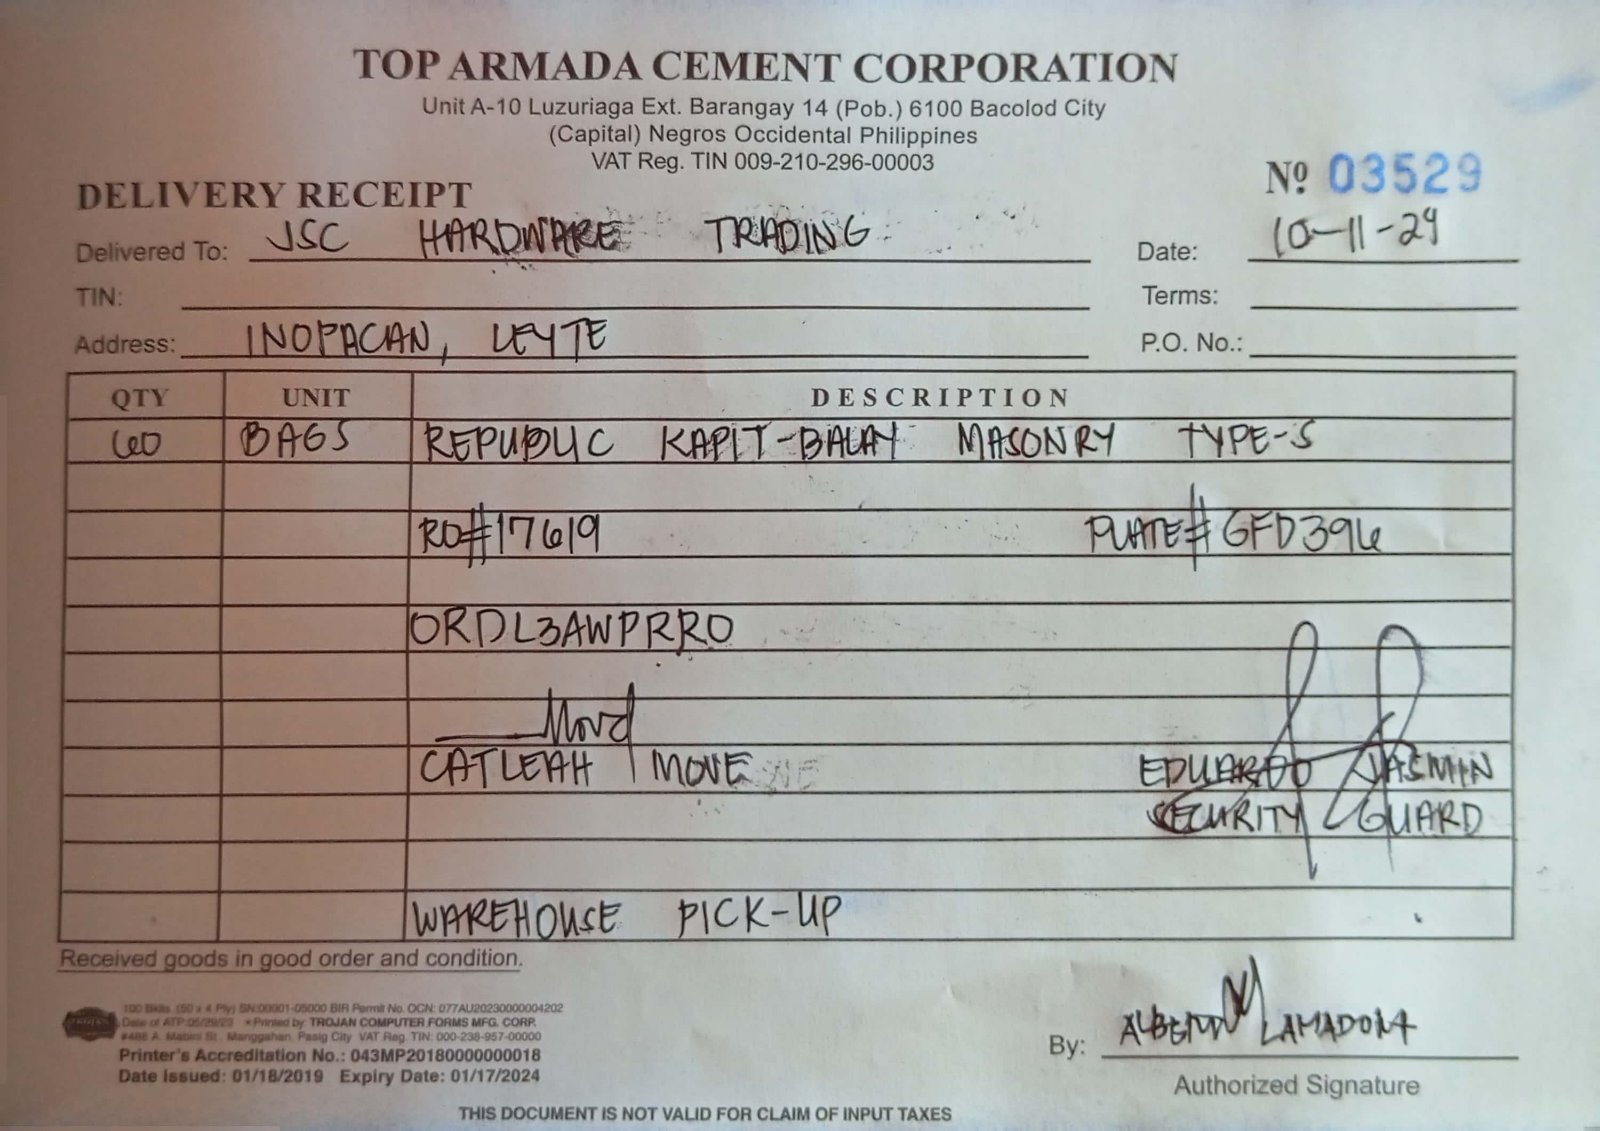 TOP ARMADA CEMENT CORPORATION
Unit A-10 Luzuriaga Ext. Barangay 14 (Pob.) 6100 Bacolod City
(Capital) Negros Occidental Philippines
VAT Reg. TIN 009-210-296-00003
Nº 03529
DELIVERY RECEIPT
Delivered To: JSC HARDWARE TRADING Date: 10-11-24
TIN: Terms:
Address: INOPACAN, LEYTE P.O. No.:
QTY UNIT DESCRIPTION
60 BAGS REPUBLIC KAPIT-BALAY MASONRY TYPE-S
RO#17619 PLATE# GFD396
ORDL3AWPRRO
CATLEAH MOVE EDUARDO JASMIN
SECURITY GUARD
WAREHOUSE PICK-UP
Received goods in good order and condition.
100 Bklts. (50 x 4 Ply) SN:00001-05000 BIR Permit No. OCN: 077AU20230000004202
Date of ATP:05/29/23 *Printed by: TROJAN COMPUTER FORMS MFG. CORP.
#488 A. Mabini St. Manggahan, Pasig City VAT Reg. TIN: 000-238-957-00000
Printer's Accreditation No.: 043MP20180000000018
Date Issued: 01/18/2019 Expiry Date: 01/17/2024
By: LAMADORA
Authorized Signature
THIS DOCUMENT IS NOT VALID FOR CLAIM OF INPUT TAXES